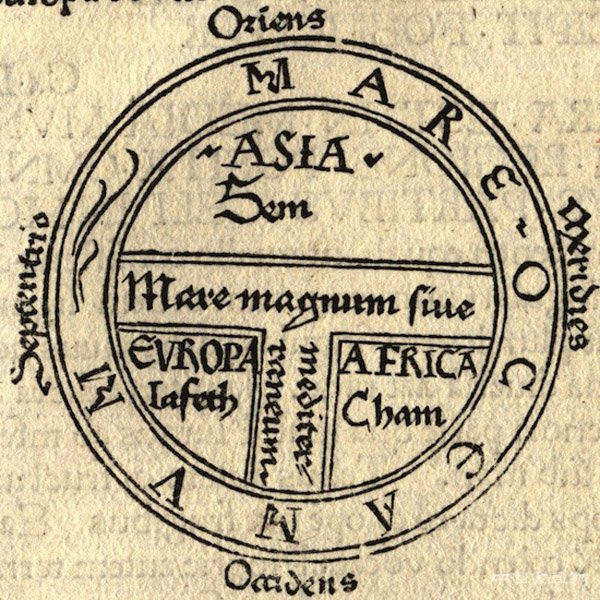 Oriens
MARE OCEANVM
ASIA
Sem
Septentrio
Meridies
Mare magnum ſiue
mediter
raneum
EVROPA
Iafeth
AFRICA
Cham
Occidens